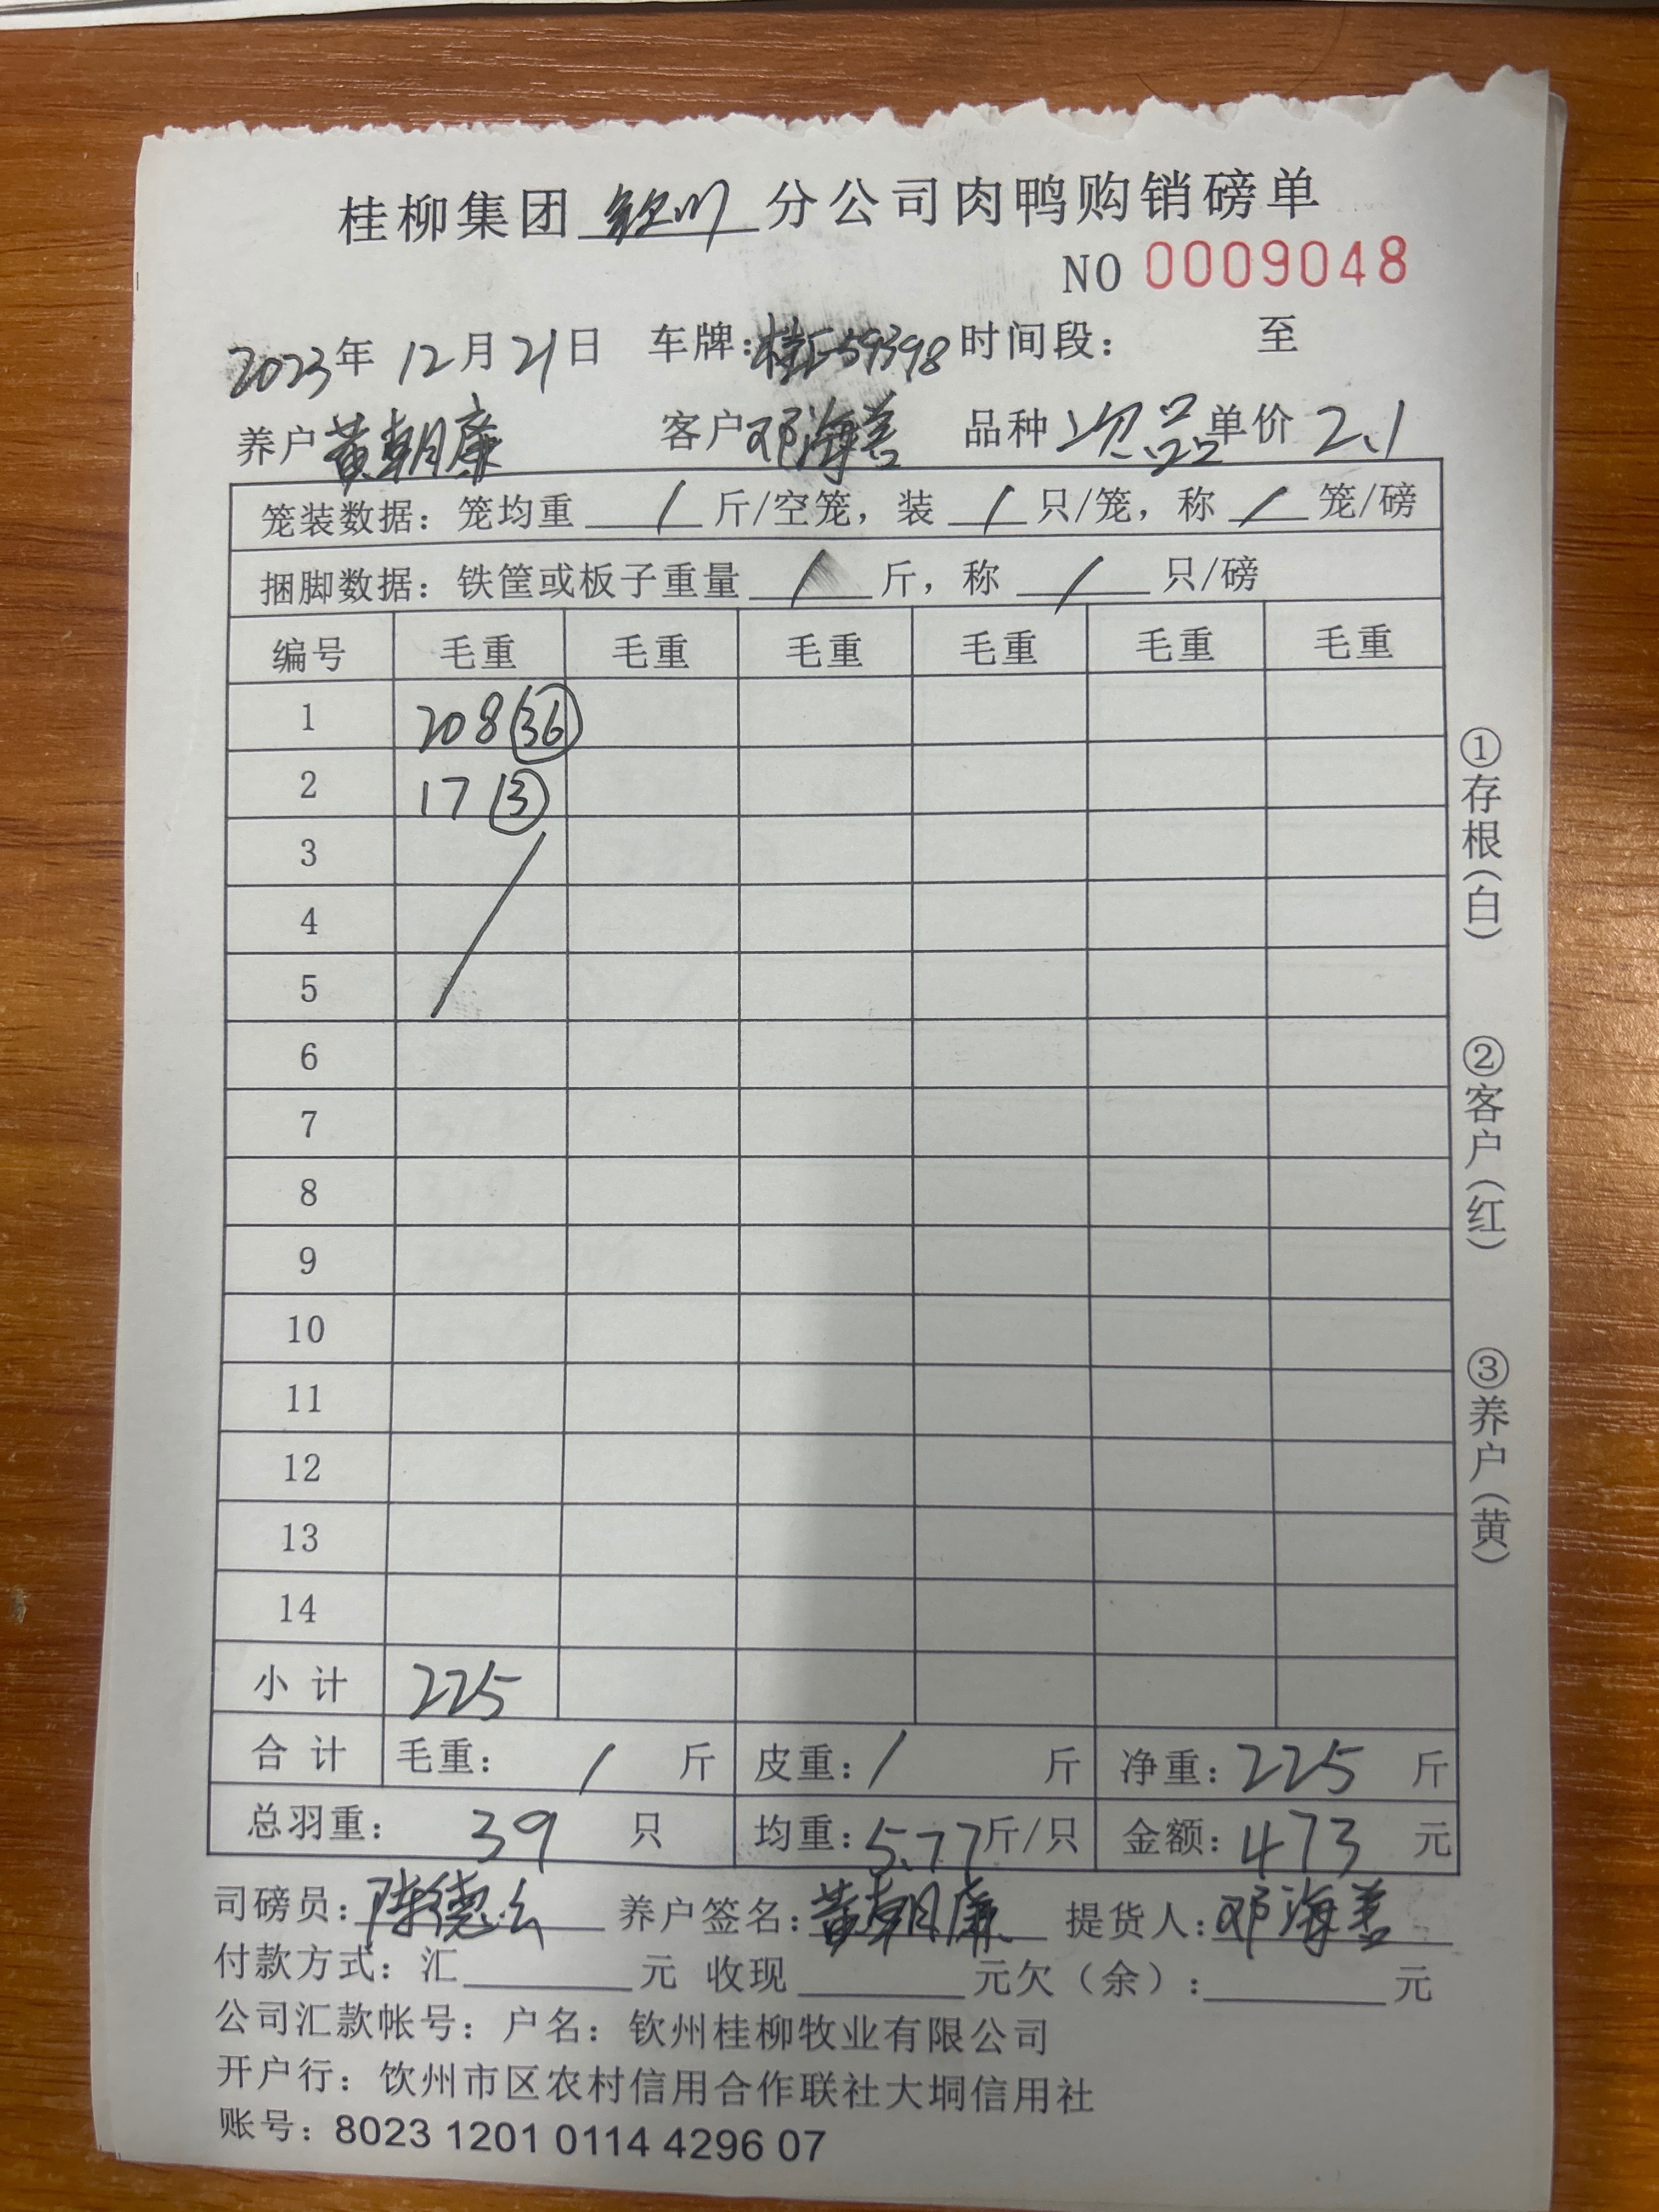 桂柳集团钦州分公司肉鸭购销磅单
NO 0009048
2023年 12月21日 车牌: 时间段: 至
养户黄朝廉 客户邓海善 品种次品单价2.1
笼装数据: 笼均重 / 斤/空笼, 装 / 只/笼, 称 / 笼/磅
捆脚数据: 铁筐或板子重量 / 斤, 称 / 只/磅
编号 毛重 毛重 毛重 毛重 毛重 毛重
1 208 (36)
2 17 (3)
3
4
5
6
7
8
9
10
11
12
13
14
小计 225
合计 毛重: / 斤 皮重: / 斤 净重: 225 斤
总羽重: 39 只 均重: 5.77斤/只 金额: 473 元
司磅员: 陈德 养户签名: 黄朝廉 提货人: 邓海善
付款方式: 汇 元 收现 元欠(余): 元
公司汇款帐号: 户名: 钦州桂柳牧业有限公司
开户行: 饮州市区农村信用合作联社大垌信用社
账号: 8023 1201 0114 4296 07
①存根(白)
②客户(红)
③养户(黄)